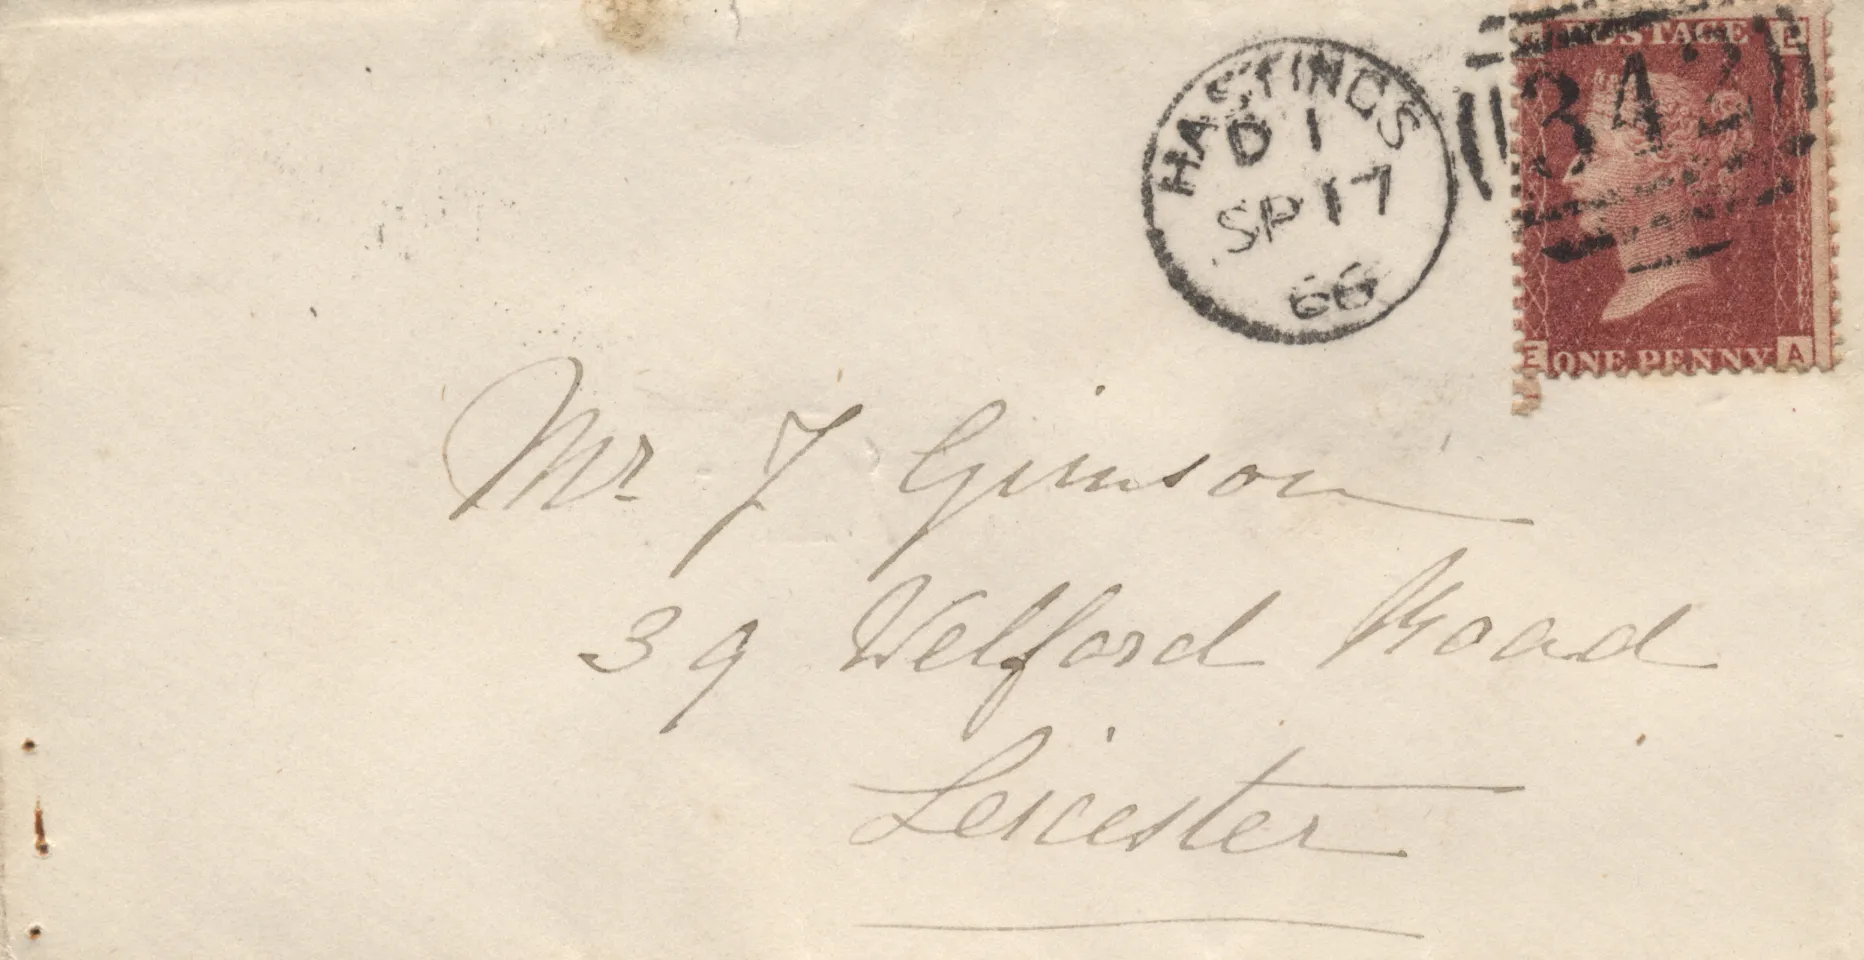 HASTINGS
D 1
SP 17
66
342
POSTAGE
E
E ONE PENNY A
Mr J Gimson
39 Welford Road
Leicester